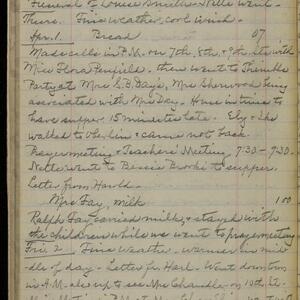 Funeral of Louise Smith. Nette went
Thurs. Fine weather, cool wind.
Apr. 1. Bread 07
Made calls in P.M. on 7th, 8th, & 9th sts with
Miss Flora Penfield. then went to Thimble
Party at Mrs L.B. Day's, Mrs Sherwood being
associated with Mrs Day. House in time to
have supper 15 minutes late. Ely & She
walked to Oberlin & came not back.
Prayer meeting & Teachers' Meeting 7:30 - 9:30
Nette went to Bessie Brooks to supper.
Letter from Harold.
Mrs Fay, milk 1 00
Ralph Fay carried milk, & stayed with
the children while we went to prayer meeting
Fri. 2 Fine Weather - warmer in mid-
dle of day - Letter fr. Harl. Went downtown
in A.M. also up to see Mrs Chandler on 10th St.